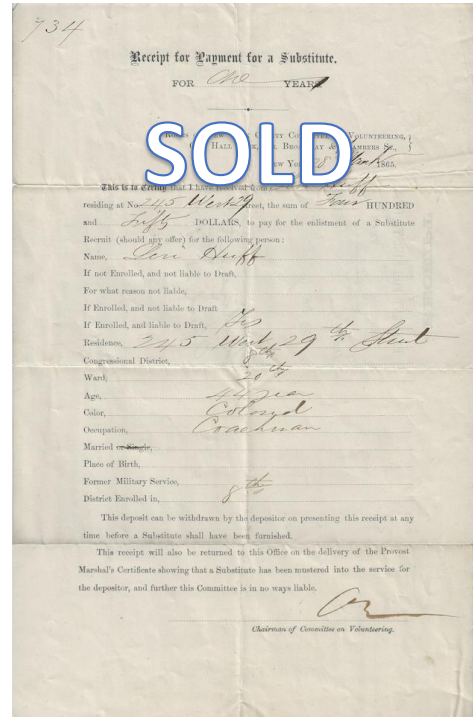 734
Receipt for Payment for a Substitute.
FOR One YEAR
SOLD
VOLUNTEERING,
HALL CHAMBERS ST.,
28 March 1865.
This is to Certify that I have received from Huff
residing at No. 245 West 29 Street, the sum of Four HUNDRED
and Fifty DOLLARS, to pay for the enlistment of a Substitute
Recruit (should any offer) for the following person:
Name, Levi Huff
If not Enrolled, and not liable to Draft,
For what reason not liable,
If Enrolled, and not liable to Draft
If Enrolled, and liable to Draft, Yes
Residence, 245 West 29th Street
Congressional District, 8th
Ward, 20th
Age, 44 year
Color, Colored
Occupation, Coachman
Married or Single,
Place of Birth,
Former Military Service,
District Enrolled in, 8th
This deposit can be withdrawn by the depositor on presenting this receipt at any
time before a Substitute shall have been furnished.
This receipt will also be returned to this Office on the delivery of the Provost
Marshal's Certificate showing that a Substitute has been mustered into the service for
the depositor, and further this Committee is in no ways liable.
Chairman of Committee on Volunteering.